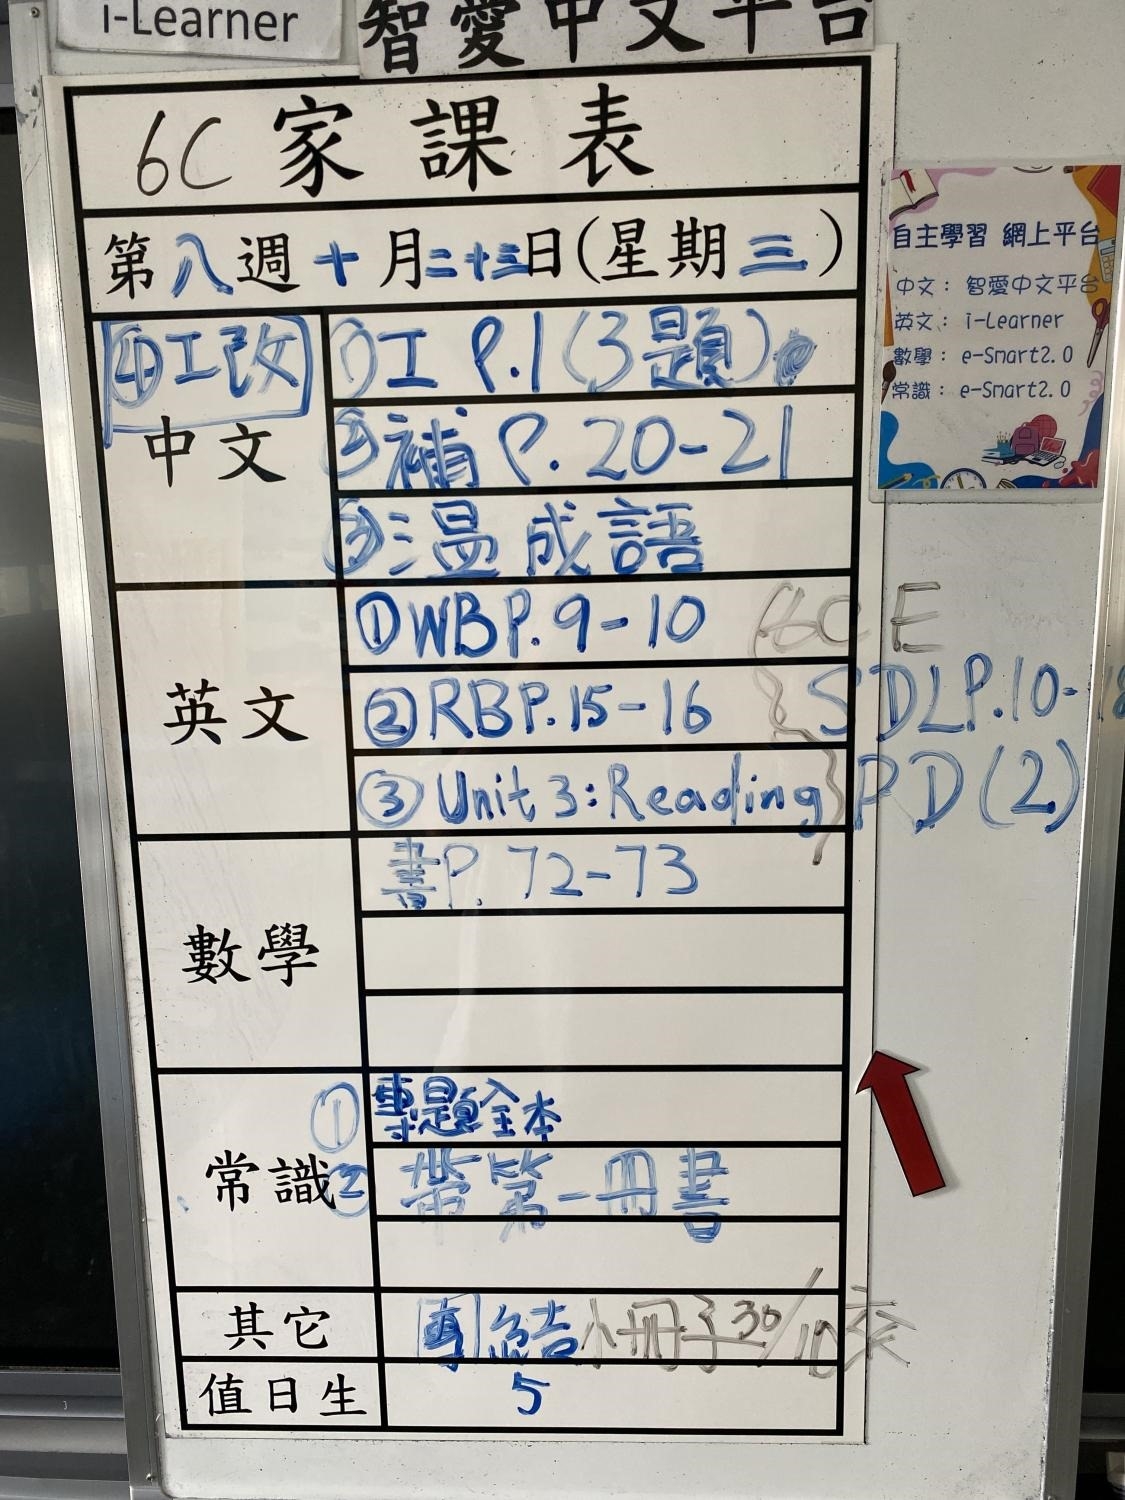 i-Learner
智愛中文平台
6C 家課表
第八週十月二十三日(星期三)
④工改
中文
①工 P.1(3題)
②補 P.20-21
③溫成語
英文
①WB P.9-10
②RB P.15-16
③Unit 3: Reading
6C E
SDL P.10-18
PD(2)
數學
書P. 72-73
常識
①專題全本
②帶第一冊書
其它
團結小冊子30/10交
值日生
5
自主學習 網上平台
中文： 智愛中文平台
英文： i-Learner
數學： e-Smart2.0
常識： e-Smart2.0